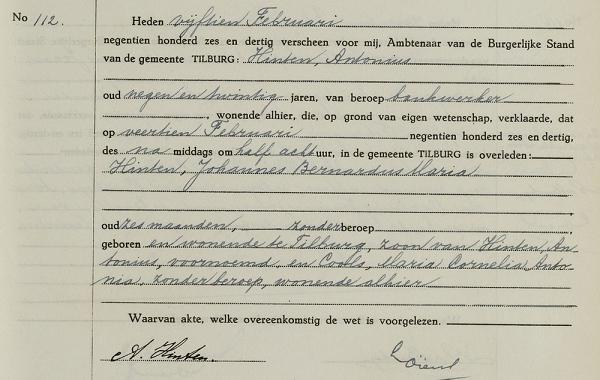 No 112.
Heden vijftien Februari
negentien honderd zes en dertig verscheen voor mij, Ambtenaar van de Burgerlijke Stand
van de gemeente TILBURG: Hinten, Antonius
oud negen en twintig jaren, van beroep bankwerker
, wonende alhier, die, op grond van eigen wetenschap, verklaarde, dat
op veertien Februari negentien honderd zes en dertig,
des na middags om half acht uur, in de gemeente TILBURG is overleden:
Hinten, Johannes Bernardus Maria
oud zes maanden, zonder beroep,
geboren en wonende te Tilburg, zoon van Hinten, An-
tonius, voornoemd, en Cools, Maria Cornelia Anto-
nia, zonder beroep, wonende alhier
Waarvan akte, welke overeenkomstig de wet is voorgelezen.
A. Hinten.